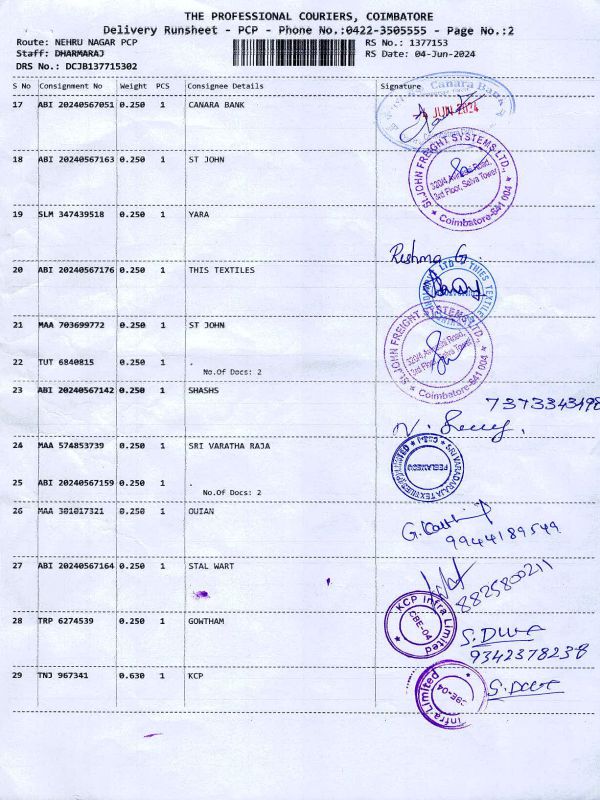 THE PROFESSIONAL COURIERS, COIMBATORE
Delivery Runsheet - PCP - Phone No.:0422-3505555 - Page No.:2
Route: NEHRU NAGAR PCP RS No.: 1377153
Staff: DHARMARAJ RS Date: 04-Jun-2024
DRS No.: DCJB137715302
S No Consignment No Weight PCS Consignee Details Signature
17 ABI 20240567051 0.250 1 CANARA BANK
Canara Bank
JUN 2024
18 ABI 20240567163 0.250 1 ST JOHN
St.JOHN FREIGHT SYSTEMS LTD.,
3rd Floor, Selva Tower
Coimbatore-641 004
19 SLM 347439518 0.250 1 YARA
Reshma G
20 ABI 20240567176 0.250 1 THIS TEXTILES
21 MAA 703699772 0.250 1 ST JOHN
St.JOHN FREIGHT SYSTEMS LTD.,
3rd Floor, Selva Tower
Coimbatore-641 004
22 TUT 6840815 0.250 1 .
No.Of Docs: 2
23 ABI 20240567142 0.250 1 SHASHS
7373343198
24 MAA 574853739 0.250 1 SRI VARATHA RAJA
SRI VARADARAJA TEXTILES (P) LIMITED
PEELAMEDU
25 ABI 20240567159 0.250 1 .
No.Of Docs: 2
26 MAA 301017321 0.250 1 OUIAN
9944189549
27 ABI 20240567164 0.250 1 STAL WART
8825800211
28 TRP 6274539 0.250 1 GOWTHAM
KCP Infra Limited
CBE-04
9342378238
29 TNJ 967341 0.630 1 KCP
Infra Limited
CBE-04